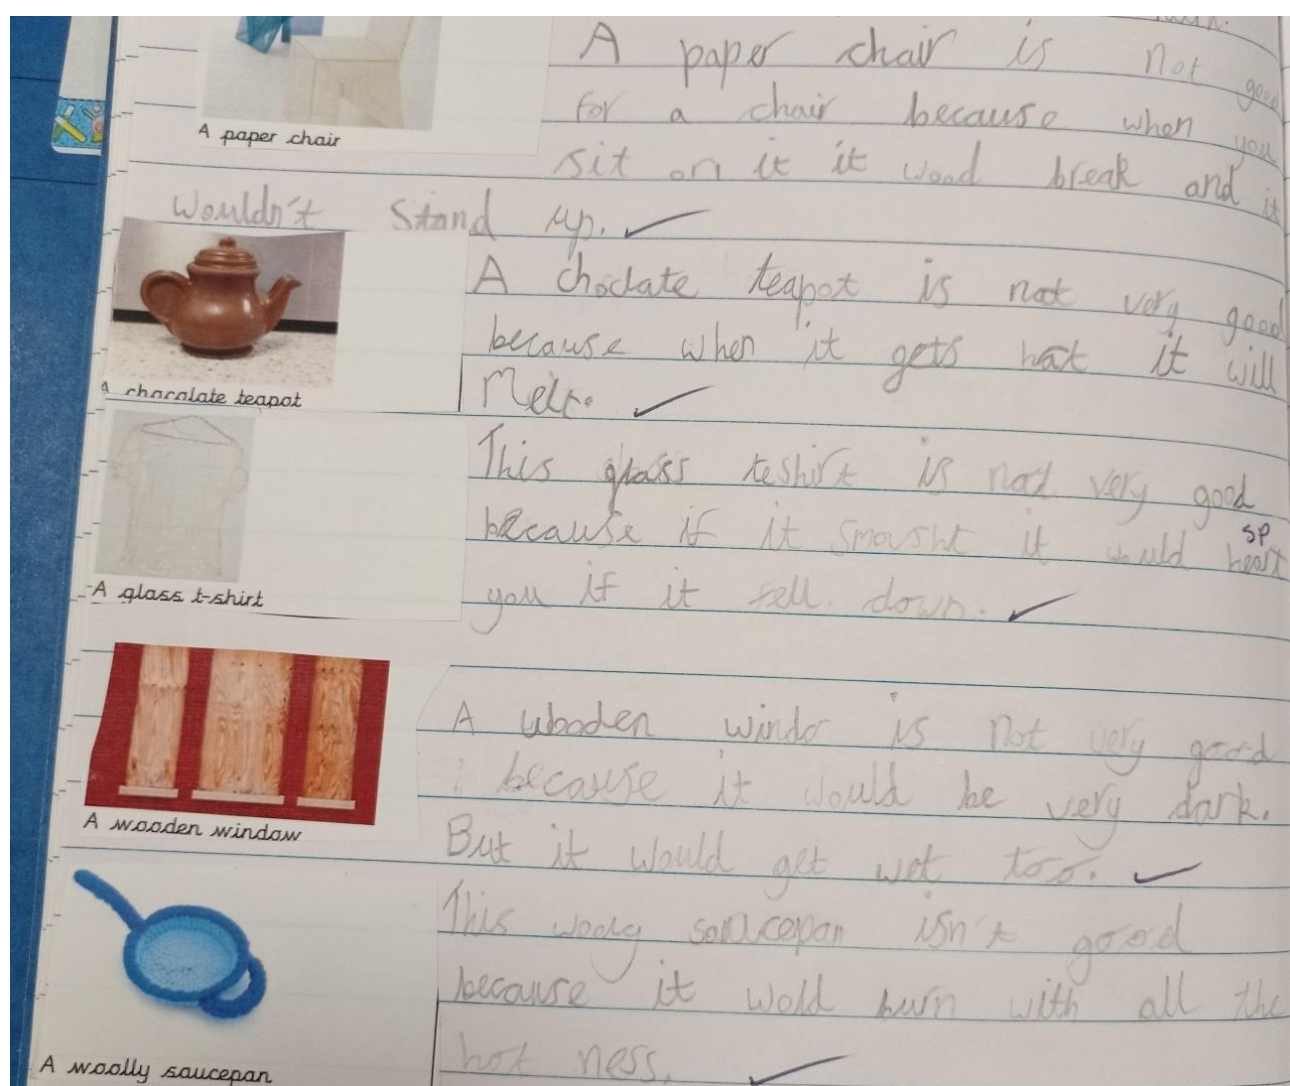 A paper chair is not good
for a chair because when you
sit on it it wood break and it
wouldn't stand up.
A paper chair
A choclate teapot is not very good
because when it gets hot it will
Melt.
A chocolate teapot
This glass teshirt is not very good
because if it smousht it would heart
sp
you if it fell down.
A glass t-shirt
A wooden windo is not very good
because it would be very dark.
But it would get wet too.
A wooden window
This wooly saucepan isn't good
because it wold burn with all the
hot ness.
A woolly saucepan